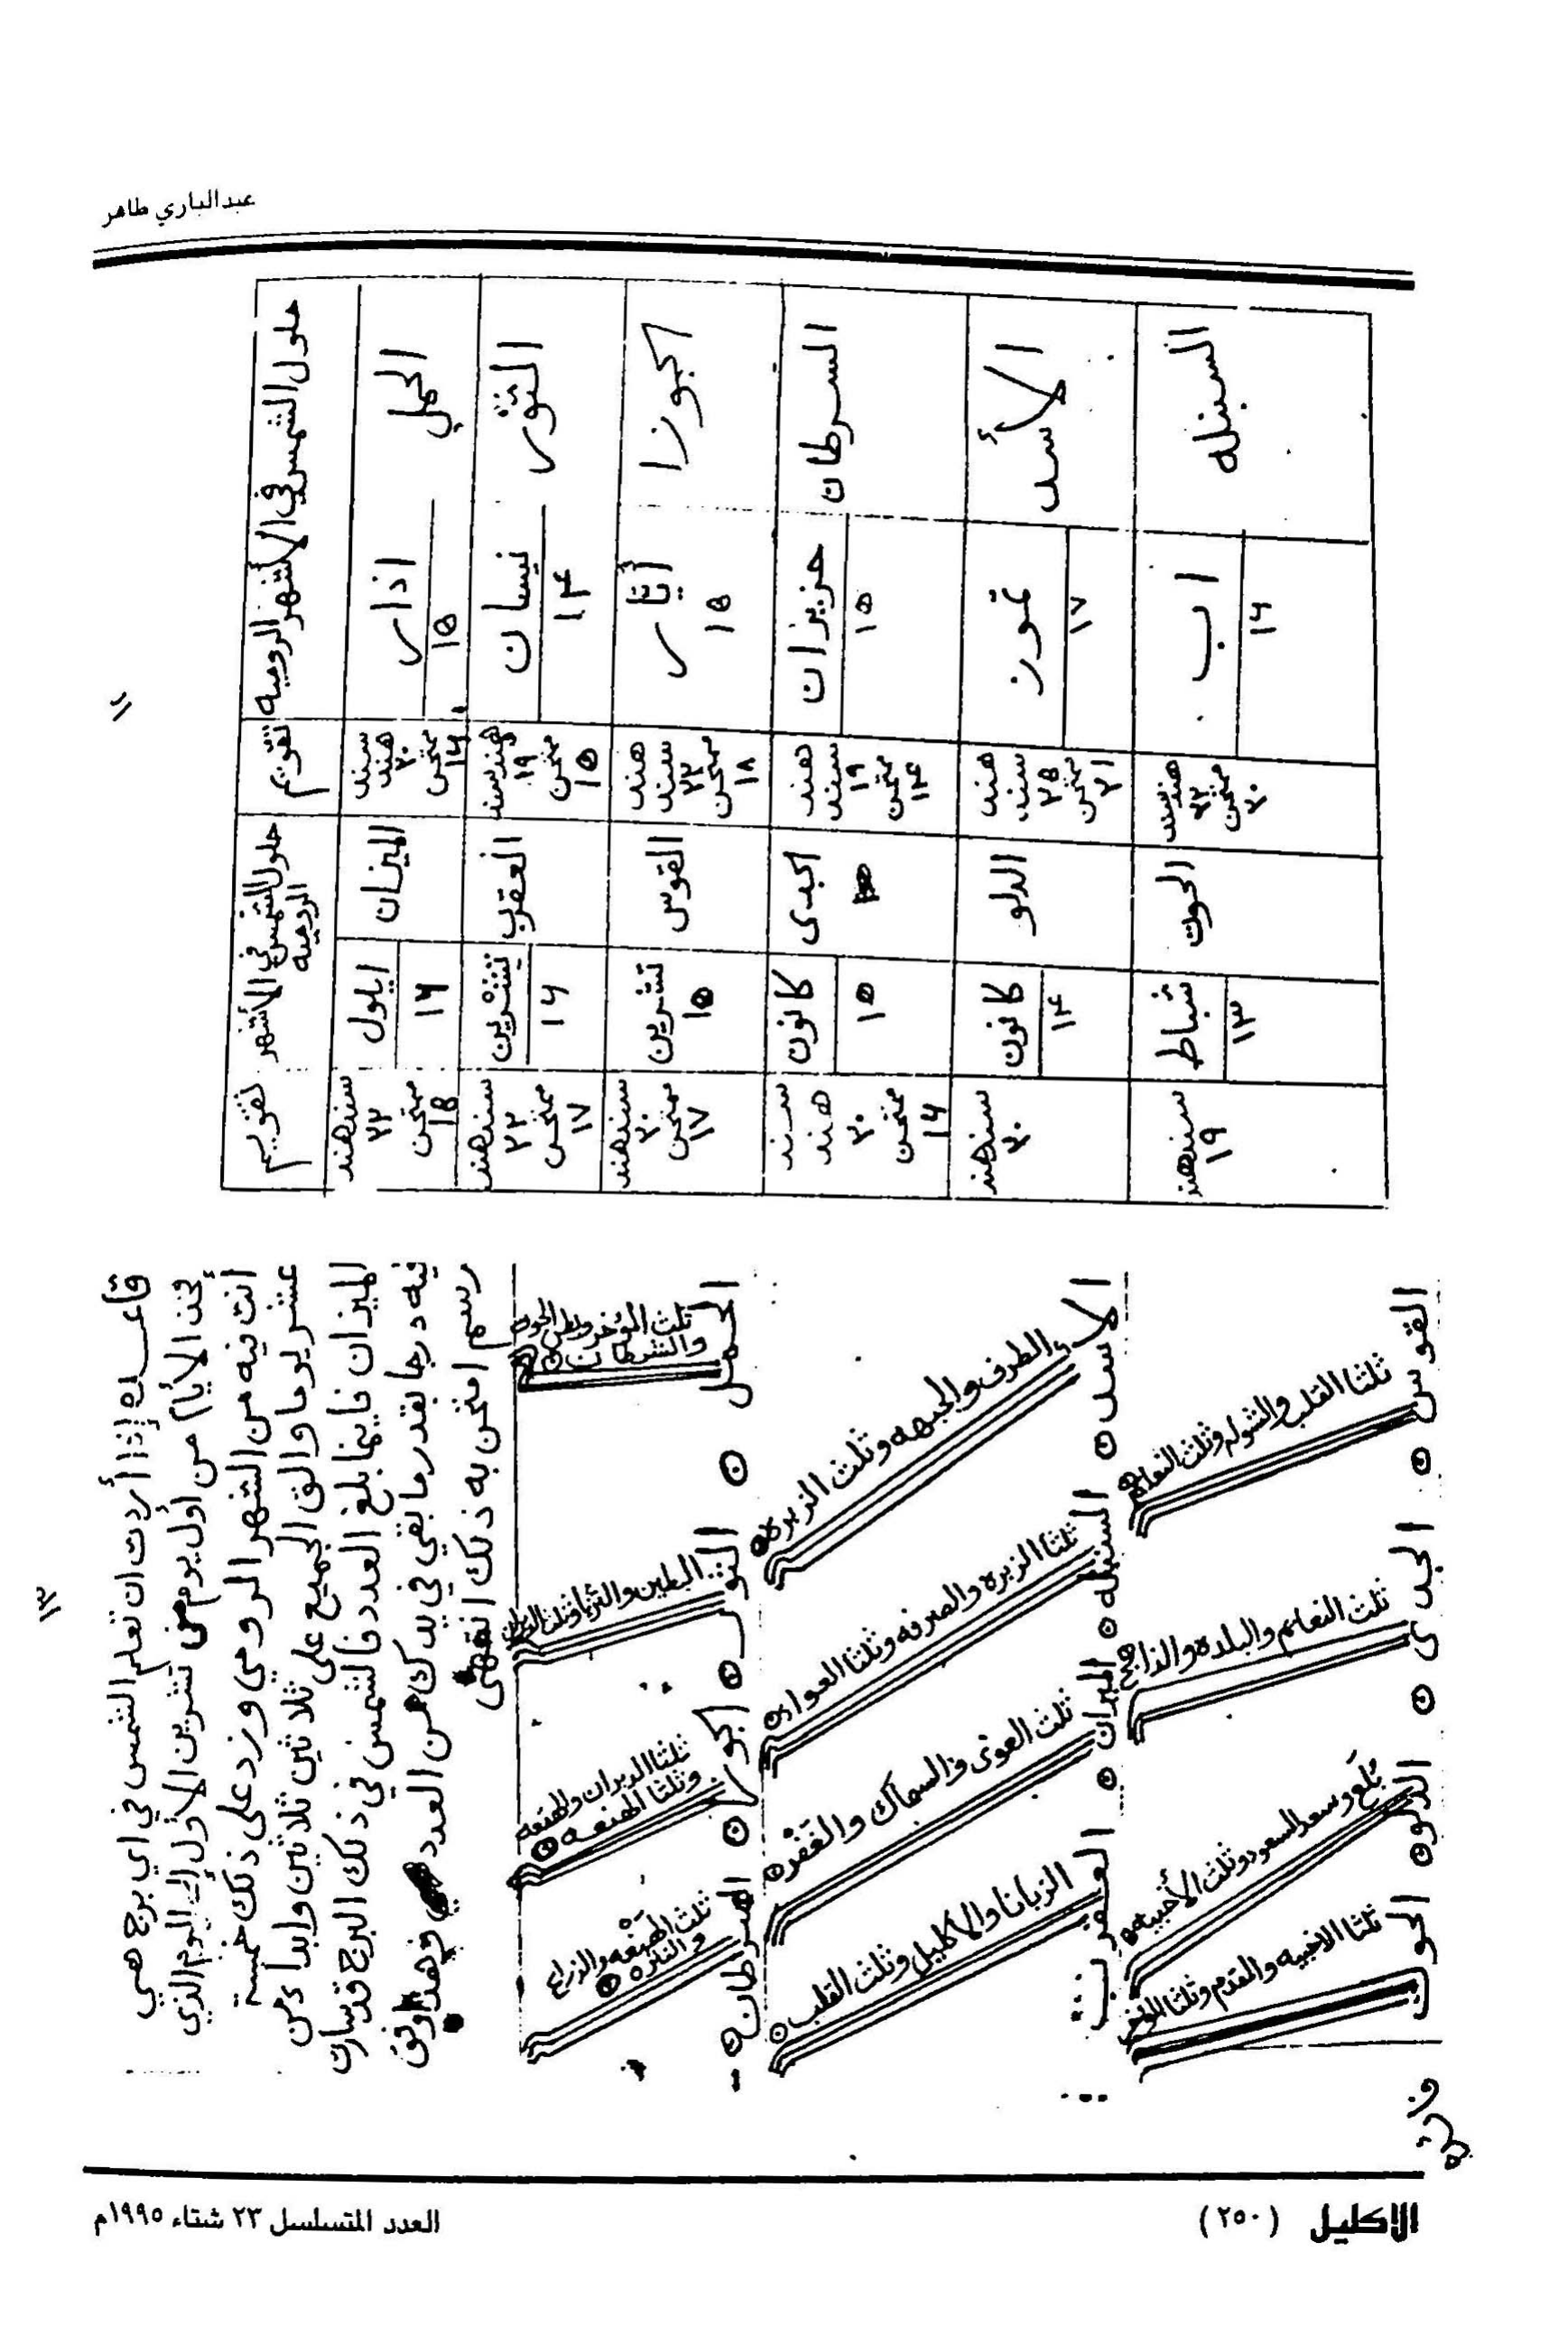 عبدالباري طاهر
١٢
حلول الشمس في الأشهر الروميه
تقويم
حلول الشمس في الأشهر الروميه
تقويم
الحمل
اذار
١٥
سند هند ٢٠
ممتحن ١٦
الميزان
ايلول
١٦
سندهند ٢٢
ممتحن ١٥
الثور
نيسان
١٤
هندسند ١٩
ممتحن ١٥
العقرب
تشرين
١٦
سندهند ٢٢
ممتحن ١٧
الجوزا
أيار
١٥
هند سند ٢٢
ممتحن ١٨
القوس
تشرين
١٥
سندهند ٢٠
ممتحن ١٧
السرطان
حزيران
١٥
هند سند ١٩
ممتحن ١٤
الجدى
كانون
١٥
سند هند ٢٠
ممتحن ١٦
الأسد
تموز
١٧
هند سند ٢٥
ممتحن ٢١
الدلو
كانون
١٤
سندهند ٢٠
السنبله
اب
١٦
هندسند ٢٢
ممتحن ٢٠
الحوت
شباط
١٣
سندهند ١٩
١٣
قاعده إذا أردت ان تعلم الشمس في اي برج هي
فخذ الأيام من أول يوم من تشرين الأول إلى اليوم الذي
أنت فيه من الشهر الرومي وزد على ذلك خمسة
عشر يوما والق الجميع على ثلاثين ثلاثين وابدأ من
الميزان فاينما بلغ العدد فالشمس في ذلك البرج قد سارت
فيه درجا بقدر ما بقي في يدك من العدد فهذا وفق
رسم امتحن به ذلك انتهى
الحمل
ثلث المؤخر وبطن الحوت
والشرطان
الثور
البطين والثريا وثلث الدبران
الجوزا
ثلثا الدبران والهقعه
وثلثا الهنعه
السرطان
ثلث الهنعه والذراع
والنثره
الاسد
والطرف والجبهه وثلث الزبره
السنبله
ثلثا الزبره والصرفه وثلثا العوا
الميزان
ثلث العوى والسماك والغفر
العقرب
الزبانا والاكليل وثلث القلب
القوس
ثلثا القلب والشوله وثلثا النعائم
الجدى
ثلث النعايم والبلده والذابح
الدلو
بلع وسعد السعود وثلث الأخبيه
الحوت
ثلثا الاخبيه والمقدم وثلثا المؤخر
الاكليل (٢٥٠)
العدد المتسلسل ٢٣ شتاء ١٩٩٥م